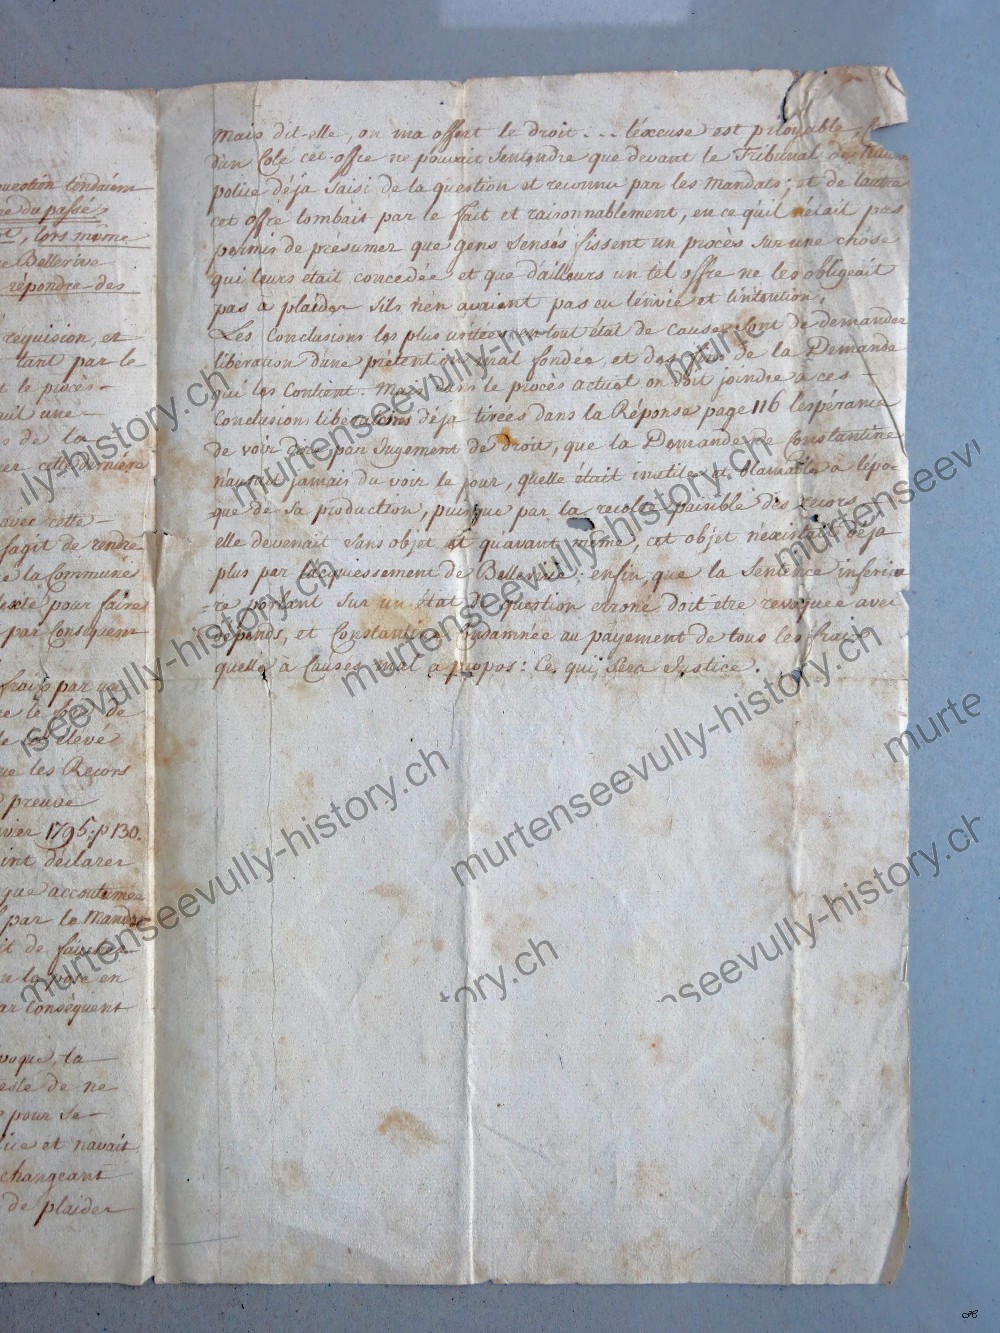 question tendaient
re du passé,
lors même
Bellerive
répondre des
requision, et
tant par le
t le procès
une
s de la
cette dernière
avec cette
s'agit de rendre
re la Commune
pour faires
par Consequent
fraix par un
de
élevé
que les Recors
preuve
vier 1795. p 130.
int déclarer
que accoutumée
par le Mande
it de
la pose en
ar Conséquent
voque, la
este de ne
pour se
et navait
changeant
de plaider
mais dit-elle, on ma offert le droit... l'éxcuse est pitoyable,
d'un Coté cet offre ne pouvait s'entendre que devant le Tribunal de
police déja saisi de la question et reconnu par les Mandats; et de lautre
cet offre tombait par le fait et raisonnablement, en ce qu'il n'était pas
permis de présumer que gens sensés fissent un procès sur une chose
qui leurs était concédée et que d'ailleurs un tel offre ne les obligeait
pas à plaider s'ils n'en avaient pas eu l'envie et l'intention.
Les Conclusions les plus usitées en tout état de cause sont de demander
libération d'une prétention mal fondée et des fins de la Demande
qui les Contient. Mais dans le procès actuel on doit joindre à ces
Conclusions libératoires déja tirées dans la Réponse page 116 l'espérance
de voir dire par Jugement de droit, que la Demande de Constantine
n'aurait jamais du voir le jour, quelle était inutile et blamable à l'épo-
que de sa production, puisque par la recolte paisible des recors
elle devenait sans objet et quavant même, cet objet n'éxistait déja
plus par l'acquiessement de Bellerive: enfin, que la Sentence inferieu
=re portant sur un état de question erroné doit etre revoquée avec
dépends, et Constantine Condamnée au payement de tous les fraix
quelle à Causés mal a propos: Ce qui sera Justice.
murtenseevully-history.ch
murtenseevully-history.ch
murtenseevully-history.ch
murtenseevully-history.ch
murtenseevully-history.ch
murtenseevully-history.ch